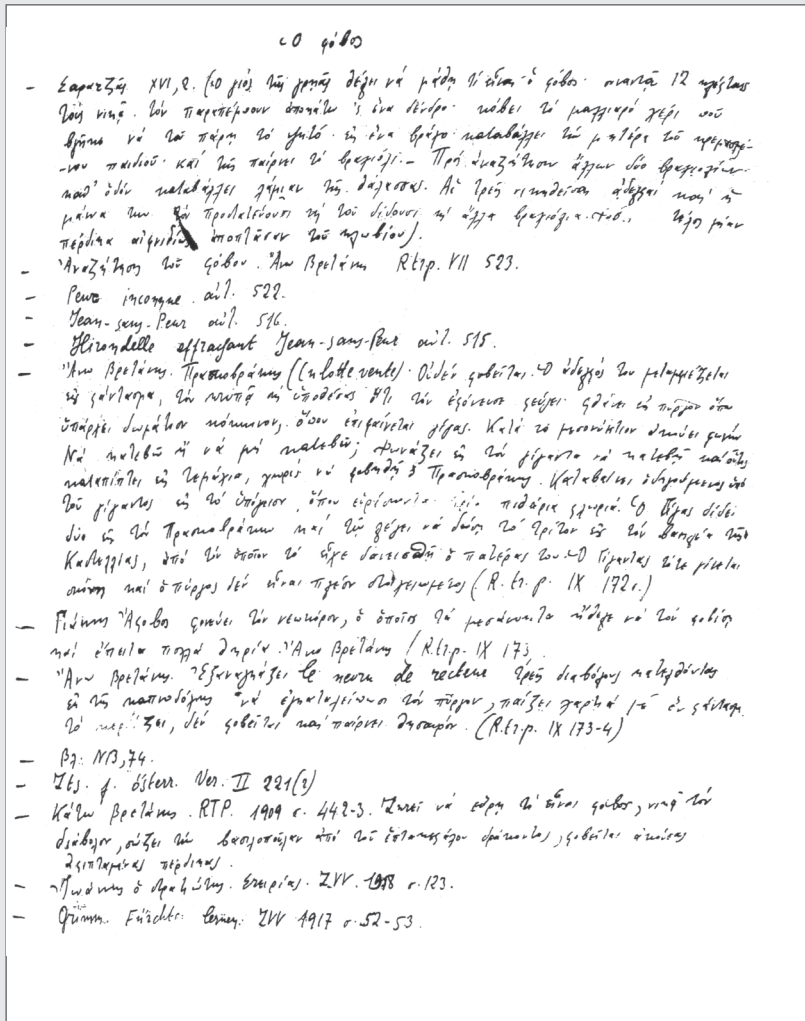 Ὁ φόβος
— Σαραντζῆς XVI, 2. (Ὁ γιὸς τῆς γρηᾶς θέλει νὰ μάθῃ τί εἶναι ὁ φόβος· συναντᾷ 12 κλέφτας
τοὺς νικᾷ. τὸν παραπέμπουν ἀποκάτω 'ς ἕνα δένδρο· κόβει τὸ μαλλιαρὸ χέρι ποῦ
βγῆκε νὰ τοῦ πάρῃ τὸ ψητό· εἰς ἕνα βράχο καταβάλλει τὴν μητέρα τοῦ κρεμασμέ-
-νου παιδιοῦ καὶ τῆς παίρνει τὸ βραχιόλι. — Πρὸς ἀναζήτησιν ἄλλων δύο βραχιολίων·
καθ' ὁδὸν καταβάλλει λάμιαν τῆς θάλασσας. Αἱ τρεῖς νικηθεῖσαι ἀδελφαὶ καὶ ἡ
μάννα των τὸν προστατεύουσι καὶ τοῦ δίδουσι τὰ ἄλλα βραχιόλια. τέλος μίαν
πέρδικα αἰφνιδίως ἀποπτᾶσαν τοῦ κλωβίου).
— Ἀναζήτησις τοῦ φόβου. Ἄνω Βρετάνη R.tr.p. VII 523.
— Peur inconnue αὐτ. 522.
— Jean-sans-Peur αὐτ. 516.
— Hirondelle effrayant Jean-sans-Peur αὐτ. 515.
— Ἄνω Βρετάνη. Πρασινοβράκης (Culotte verte). Οὐδὲν φοβεῖται. Ὁ ἀδελφός του μεταμφιέζεται
εἰς φάντασμα, τὸν κτυπᾷ καὶ ὑποθέσας ὅτι τὸν ἐφόνευσε φεύγει· φθάνει εἰς πύργον ὅπου
ὑπάρχει δωμάτιον κόκκινον, ὅπου ἐμφαίνεται γίγας. Κατὰ τὸ μεσονύκτιον ἀκούει φωνήν
Νὰ κατεβῶ ἢ νὰ μὴ κατεβῶ; Φωνάζει εἰς τὸν γίγαντα νὰ κατεβῇ καὶ οὗτος
καταπίπτει εἰς τεμάχια, χωρὶς νὰ φοβηθῇ ὁ Πρασινοβράκης. Καταβαίνει ὁδηγούμενος ὑπὸ
τοῦ γίγαντος εἰς τὸ ὑπόγειον, ὅπου εὑρίσκονται τρία πιθάρια φλωριά. Ὁ Γίγας δίδει
δύο εἰς τὸν Πρασινοβράκην καὶ τῷ λέγει νὰ δώσῃ τὸ τρίτον εἰς τὸν βασιλέα τῆς
Καστιλλίας, ἀπὸ τὸν ὁποῖον τὸ εἶχε δανεισθῆ ὁ πατέρας του. Ὁ Γίγαντας τότε γίνεται
σκόνη καὶ ὁ πύργος δὲν εἶναι πλέον στοιχειωμένος (R.tr.p. IX 172.)
— Γιάννης Ἄφοβος φονεύει τὸν νεωκόρον, ὁ ὁποῖος τὰ μεσάνυκτα ἤθελε νὰ τὸν φοβίσῃ
καὶ ἔπειτα πολλὰ θηρία. Ἄνω Βρετάνη (R.tr.p. IX 173
— Ἄνω Βρετάνη. Ἐξαναγκάζει le neveu du recteur τρεῖς διαβόλους κατελθόντας
ἐκ τῆς καπνοδόχης νὰ ἐγκαταλείπωσι τὸν πύργον, παίζει χαρτιὰ μὲ ἓν φάντασμα
τὸ κερδίζει, δὲν φοβεῖται καὶ παίρνει θησαυρόν. (R.tr.p. IX 173-4)
— Βλ. NB, 74.
— Zts. f. österr. Ver. II 221(2)
— Κάτω Βρετάνη. RTP. 1909 σ. 442-3. Ζητεῖ νὰ εὕρῃ τί εἶναι φόβος, νικᾷ τὸν
διάβολον, σώζει τὴν βασιλοποῦλαν ἀπὸ τοῦ ἑπτακεφάλου δράκοντος, φοβεῖται ἀκούσας
πέρδικας.
— Ἰωάννης ὁ στρατιώτης. ZVV. 1918 σ. 123.
— Grimm. Fürchten lernen: ZVV 1917 σ. 52-53.